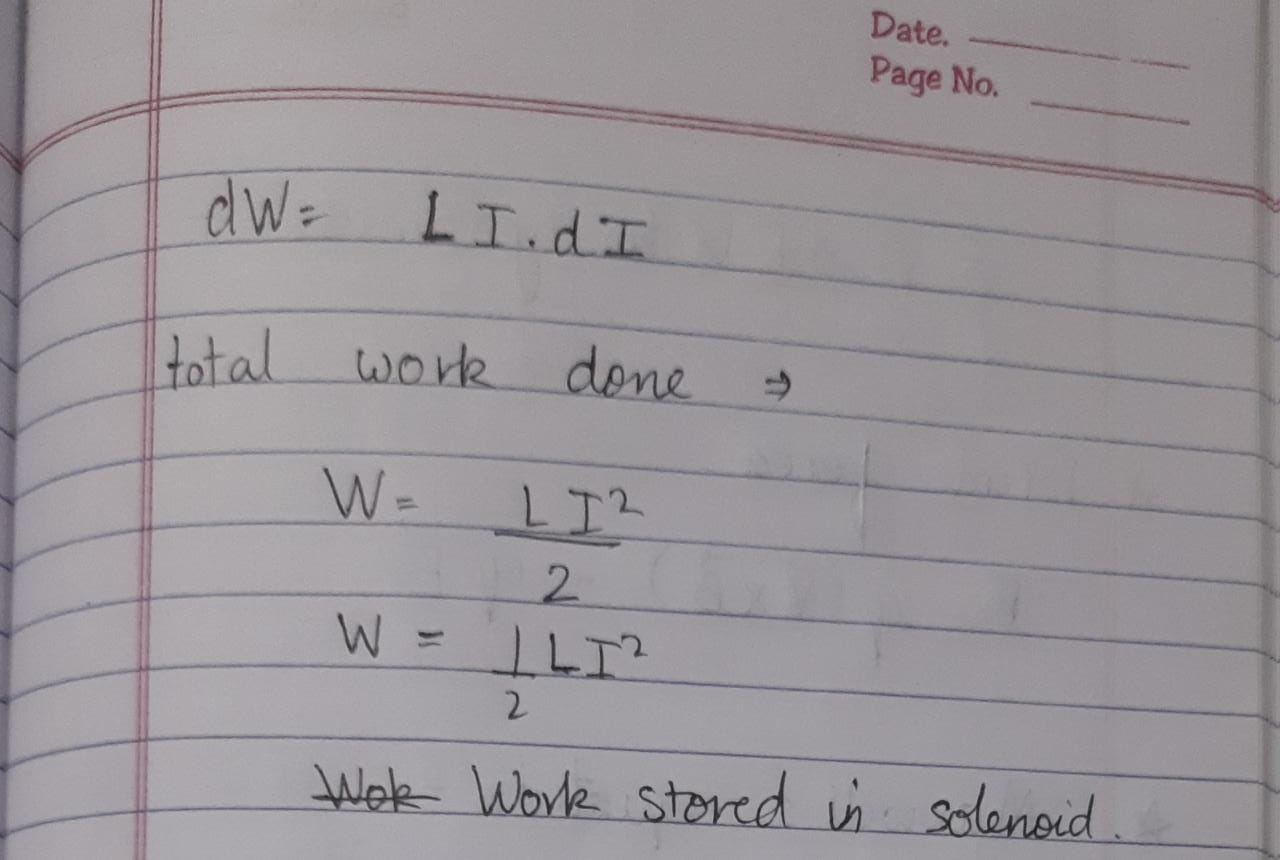 Date.
Page No.
dW= LI.dI
total work done ⇒
W= LI²
2
W = 1 LI²
2
Wok Work stored in solenoid.